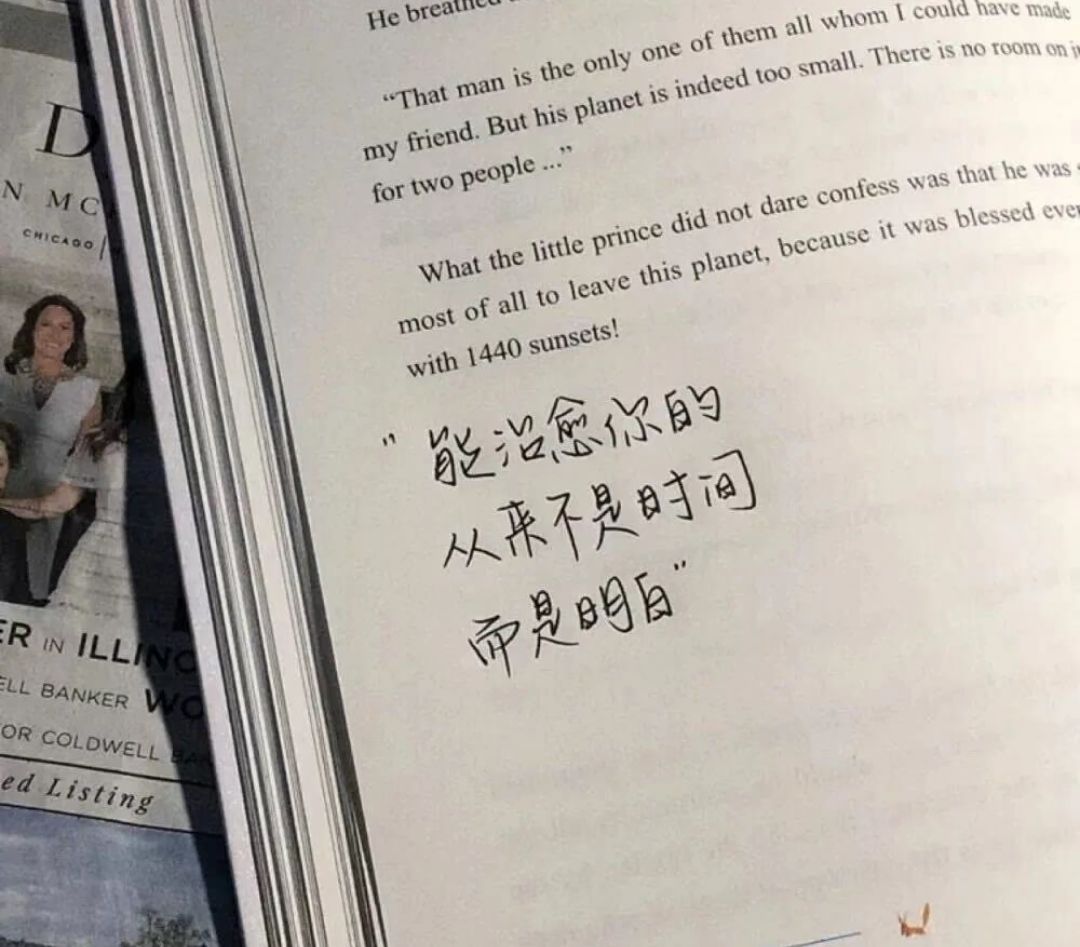 He breathed
“That man is the only one of them all whom I could have made
my friend. But his planet is indeed too small. There is no room on it
for two people ...”
What the little prince did not dare confess was that he was
most of all to leave this planet, because it was blessed
with 1440 sunsets!
"能治愈你的
从来不是时间
而是明白"
D
N MC
CHICAGO
ER IN ILLINO
ELL BANKER WO
OR COLDWELL BA
ed Listing